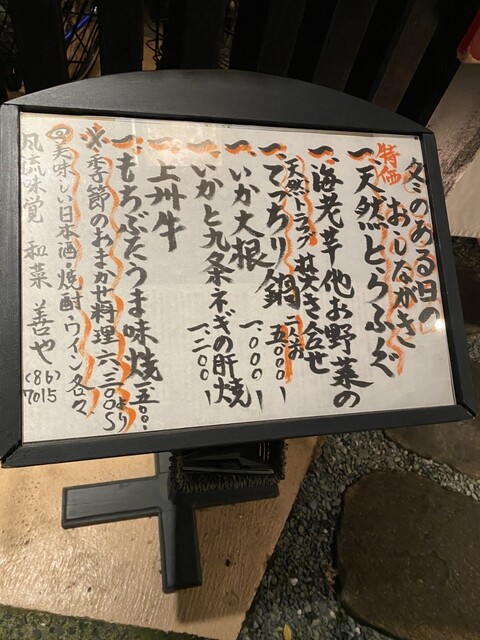 冬のある日の
おしながき
特価
一、天然とらふぐ
一、海老芋他お野菜の
炊き合せ
一、てっちり鍋 五〇〇〇ー
天然トラフグ
一、いか大根 一、〇〇〇ー
一、いかと九条ネギの肝焼 一、二〇〇ー
一、上州牛
一、もちぶたうま味焼 一、五〇〇
※季節のおまかせ料理 六、三〇〇より
美味しい日本酒・焼酎・ワイン各々
風流味覚 和菜 善や (86)7015